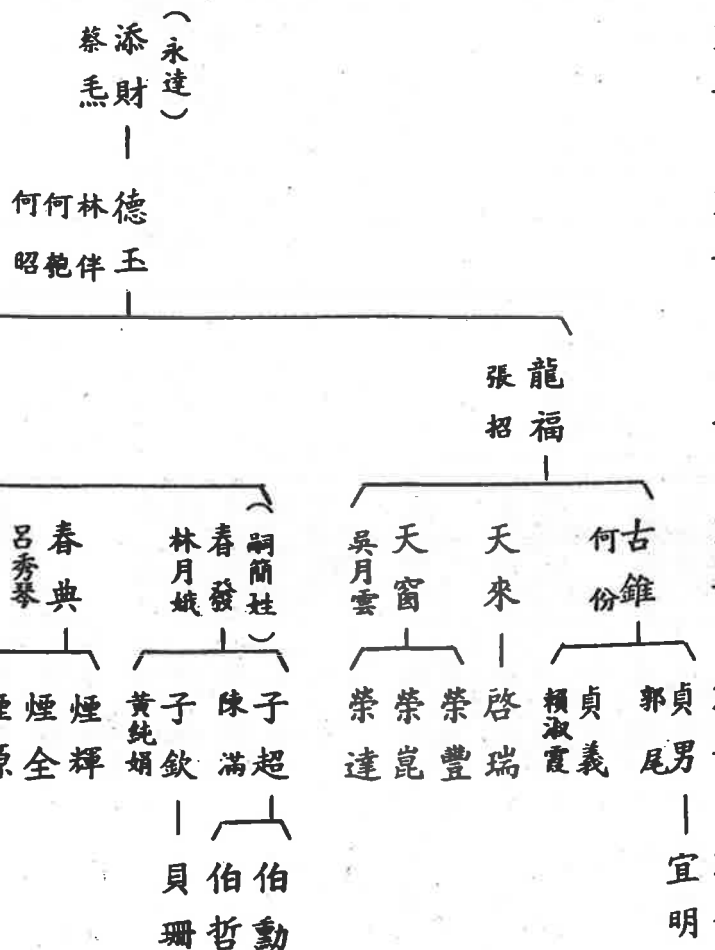 （永達）
添財
蔡𤆬
德玉
林伴
何𫗦
何昭
龍福
張招
古錐
何份
天來
天窗
吳月雲
（嗣簡姓）
春發
林月娥
春典
呂秀琴
貞男
郭尾
貞義
賴淑霞
啓瑞
榮豐
榮崑
榮達
子超
陳滿
子欽
黃純娟
煙輝
煙全
宜明
伯勳
伯哲
貝珊